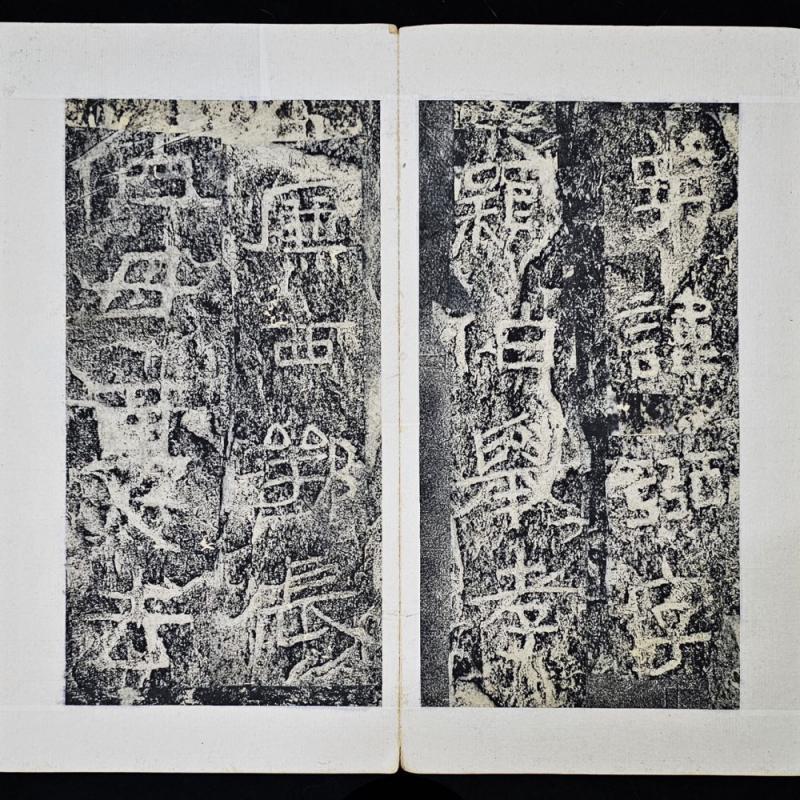 弟諱弼字
穎伯舉孝
廉西鄂長
伯母憂去